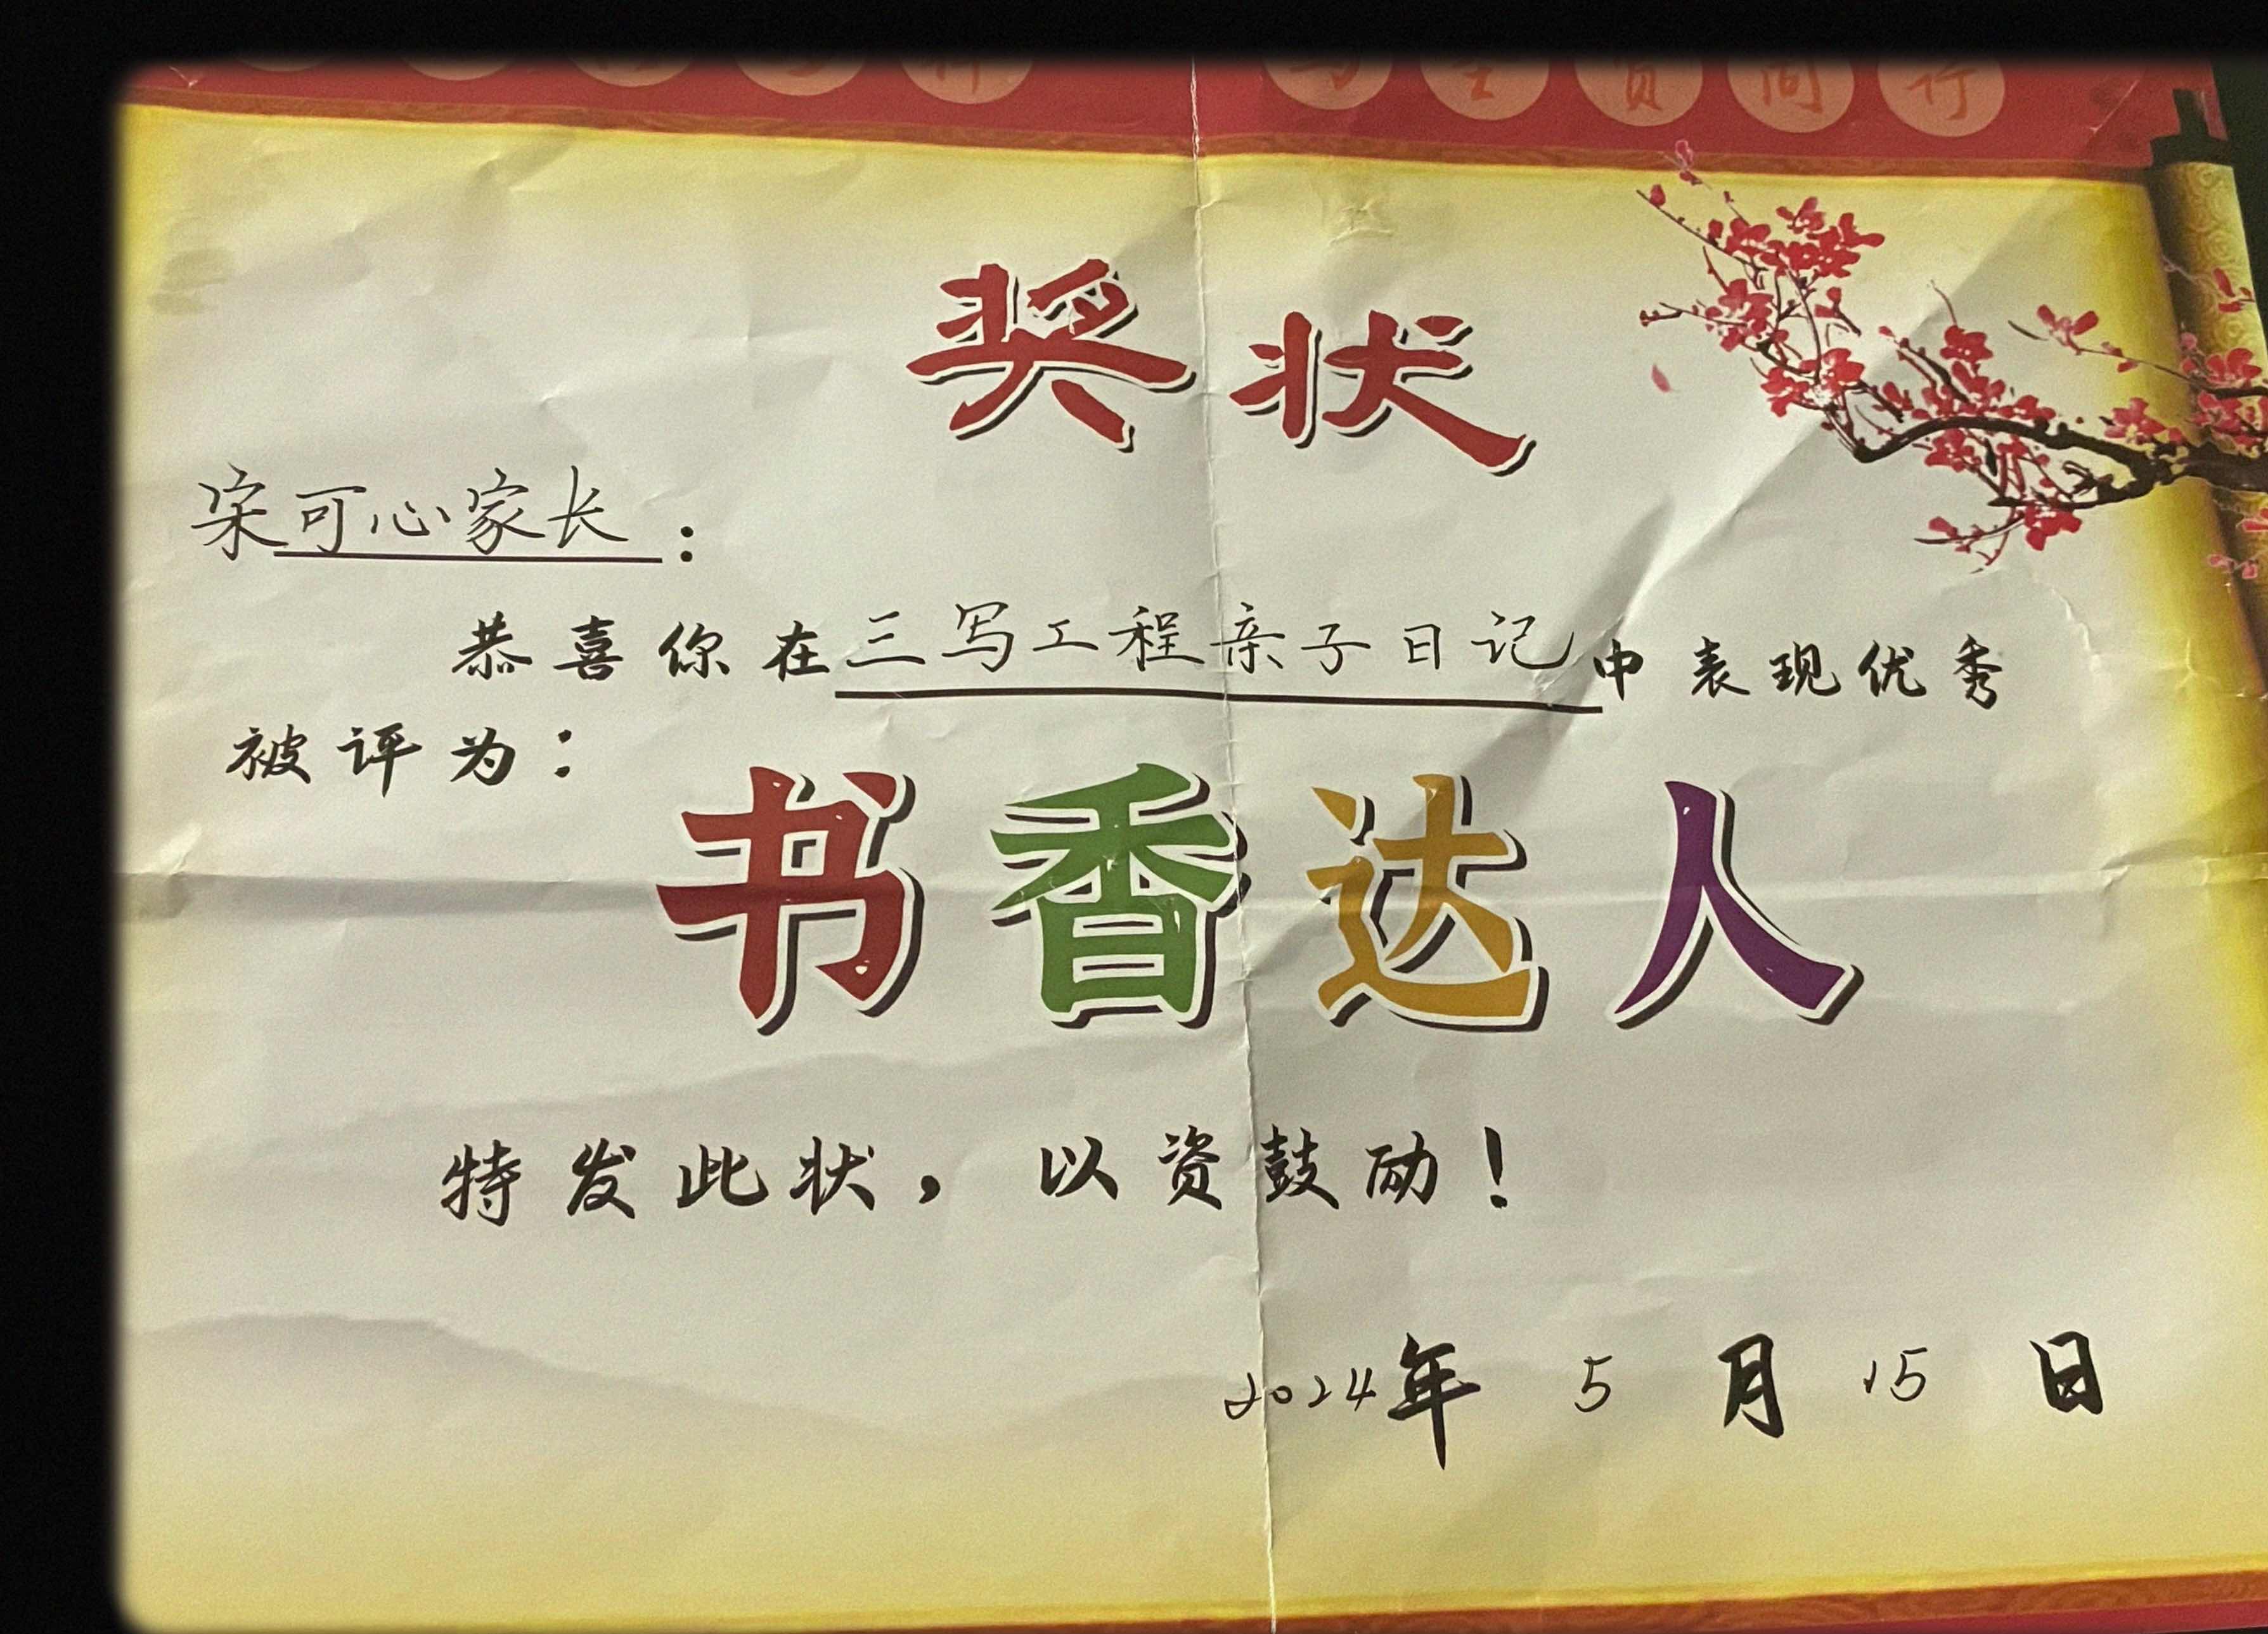 奖状
宋可心家长：
恭喜你在三写工程亲子日记中表现优秀
被评为：
书香达人
特发此状，以资鼓励！
2024年 5 月 15 日